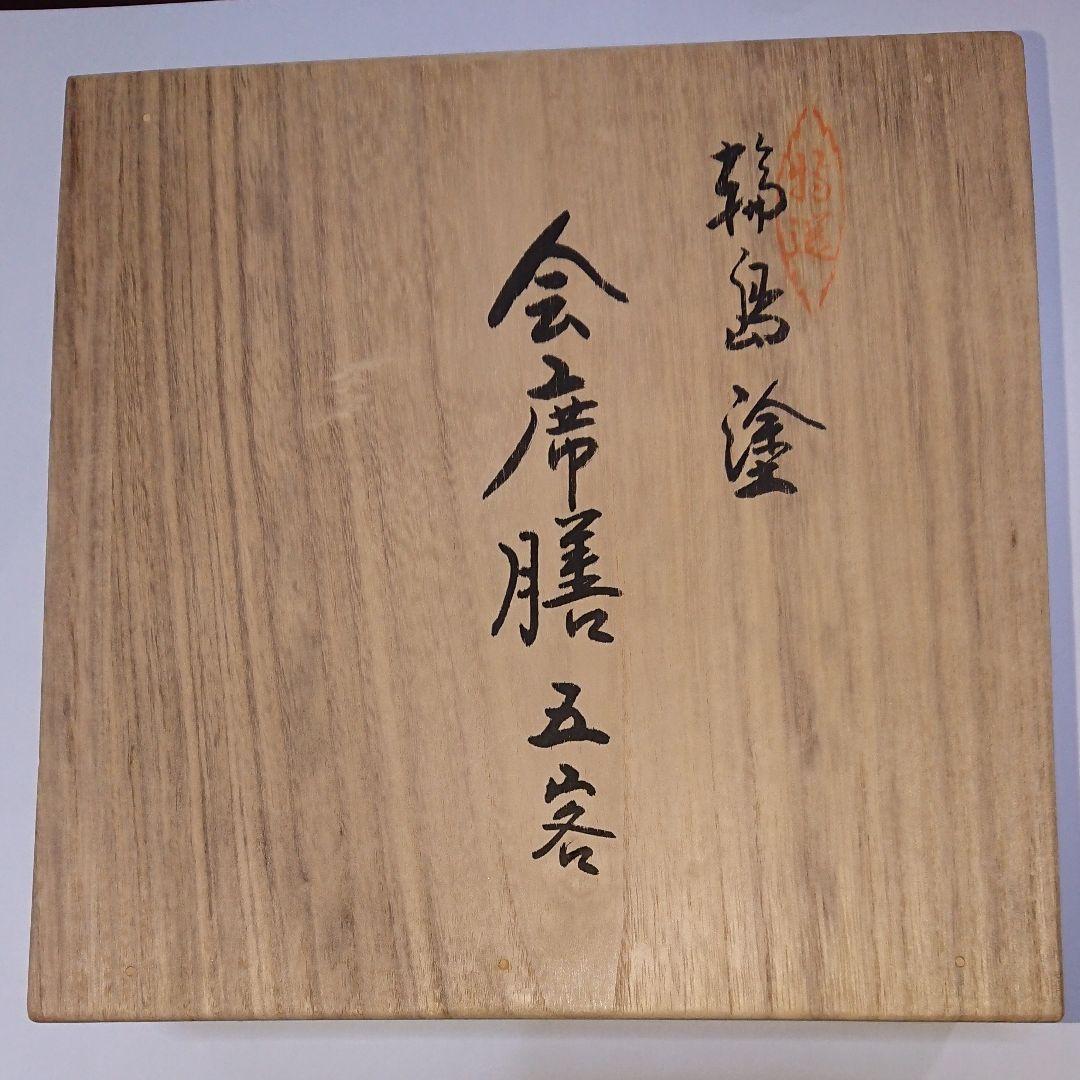 輪島塗
会席膳 五客